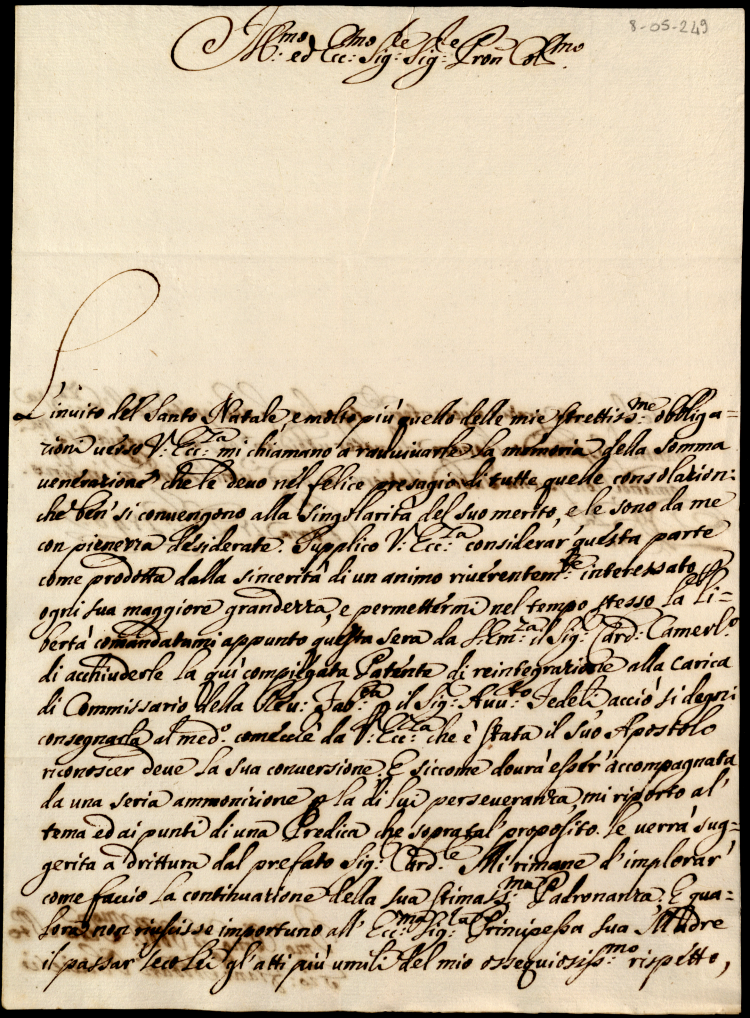 8-05-249
Ill:mo ed Ecc:mo Sig:re Sig:re Pron Col:mo
L'invito del Santo Natale, e molto più quello delle mie strettiss:me obbliga=
zioni verso V: Ecc:za mi chiamano a ravvivarle la memoria della somma
venerazione che le devo nel felice presagio di tutte quelle consolazioni
che ben' si convengono alla singolarità del suo merito, e le sono da me
con pienezza desiderate. Supplico V: Ecc:za considerar' questa parte
come prodotta dalla sincerità di un animo riverentem:te interessato p
ogni sua maggiore grandezza, e permettermi nel tempo stesso la li=
bertà comandatami appunto questa sera da S: Em:za il Sig: Card: Camerl:o
di acchiuderle la quì compiegata Patente di reintegrazione alla carica
di Commissario della Rev: Fab:ca p il Sig: Avv:to Fedeli acciò si degni
consegnarla al med:o come che da V: Ecc:za che è stata il suo Apostolo
riconoscer deve la sua conversione. E siccome dovrà esser' accompagnata
da una seria ammonizione p la di lui perseveranza, mi riporto al'
tema ed ai punti di una Predica che sopra tal' proposito le verrà sug=
gerita a drittura dal prefato Sig: Card:e Mi rimane d'implorar'
come faccio la continuazione della sua stimass:ma Padronanza. E qua=
lora non riuscisse importuno all' Ecc:ma Sig:ra Principessa sua Madre
il passar' seco Lei gl'atti più umili del mio ossequiosiss:mo rispetto,